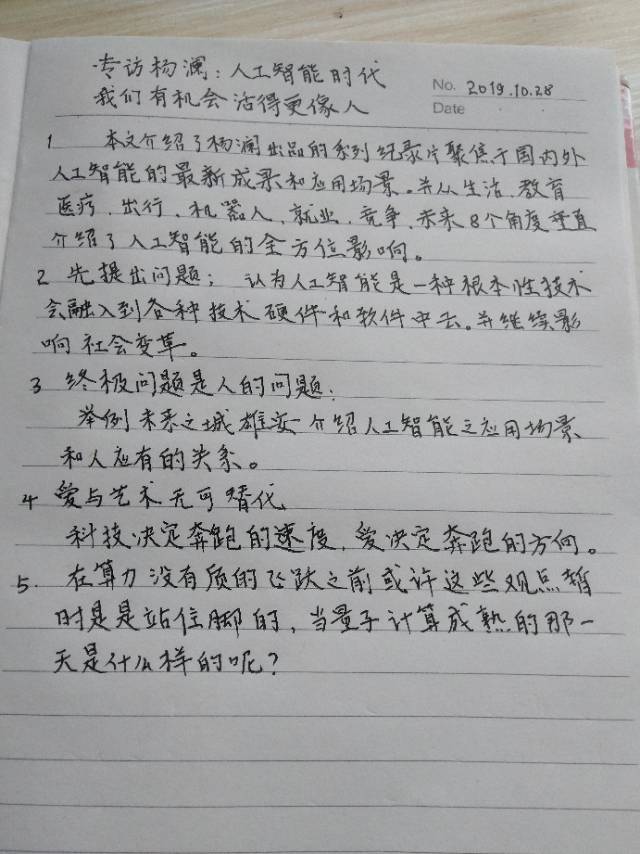 专访杨澜：人工智能时代
我们有机会活得更像人
No. 2019.10.28
Date
1 本文介绍了杨澜出品的系列纪录片聚焦于国内外
人工智能的最新成果和应用场景。并从生活、教育
医疗、出行、机器人、就业、竞争、未来8个角度垂直
介绍了人工智能的全方位影响。
2 先提出问题；认为人工智能是一种根本性技术
会融入到各种技术硬件和软件中去。并继续影
响社会变革。
3 终极问题是人的问题：
举例未来之城雄安介绍人工智能之应用场景
和人应有的关系。
4 爱与艺术无可替代
科技决定奔跑的速度，爱决定奔跑的方向。
5. 在算力没有质的飞跃之前或许这些观点暂
时是是站住脚的，当量子计算成熟的那一
天是什么样的呢？